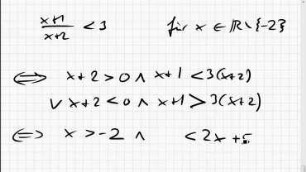 (x+1)/(x+2) < 3 für x ∈ ℝ \ {-2}
⇔ x+2 > 0 ∧ x+1 < 3(x+2)
∨ x+2 < 0 ∧ x+1 > 3(x+2)
⇔ x > -2 ∧ < 2x + 5